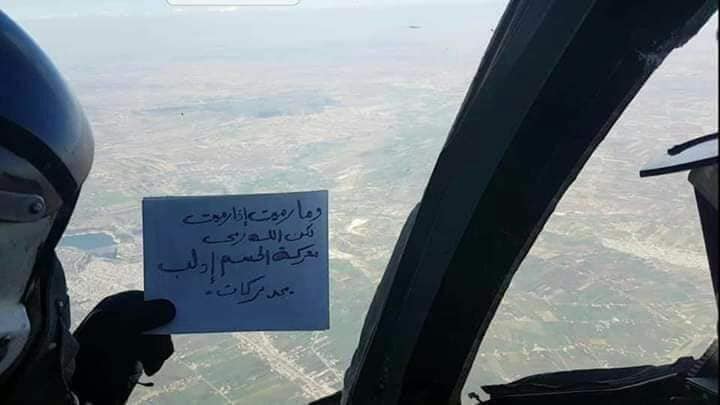 وما رميت إذ رميت
لكن الله رمى
معركة الحسم إدلب
بركات